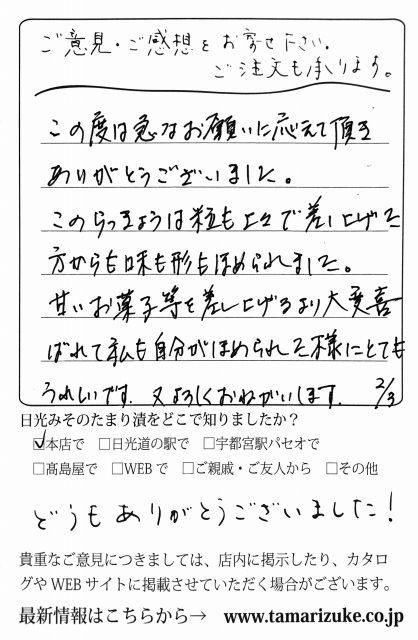 ご意見・ご感想をお寄せ下さい。
ご注文も承ります。
この度は急なお願いに応えて頂き
ありがとうございました。
このらっきょうは粒も上々で差し上げた
方からも味も形もほめられました。
甘いお菓子等を差し上げるより大変喜
ばれて私も自分がほめられた様にとても
うれしいです。又よろしくおねがいします。 2/3
日光みそのたまり漬をどこで知りましたか?
☑本店で □日光道の駅で □宇都宮駅パセオで
□髙島屋で □WEBで □ご親戚・ご友人から □その他
どうもありがとうございました!
貴重なご意見につきましては、店内に掲示したり、カタロ
グやWEBサイトに掲載させていただく場合がございます。
最新情報はこちらから→ www.tamarizuke.co.jp